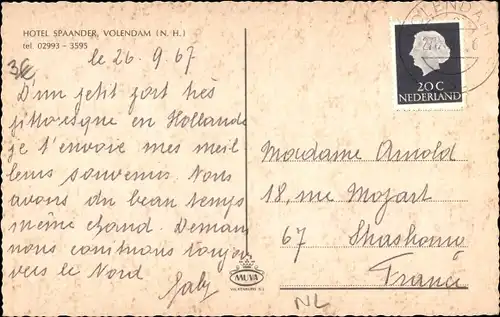 HOTEL SPAANDER, VOLENDAM (N. H.)
tel. 02993 - 3595
le 26. 9. 67
D'un petit port très
pittoresque en Hollande
je t'envoie mes meil
leurs souvenirs. Nous
avons du beau temps
même chaud. Demain
nous continuons toujours
vers le Nord
Gaby
VOLENDAM
20 C
NEDERLAND
Madame Arnold
18, rue Mozart
67 Strasbourg
France
MUVA
NL